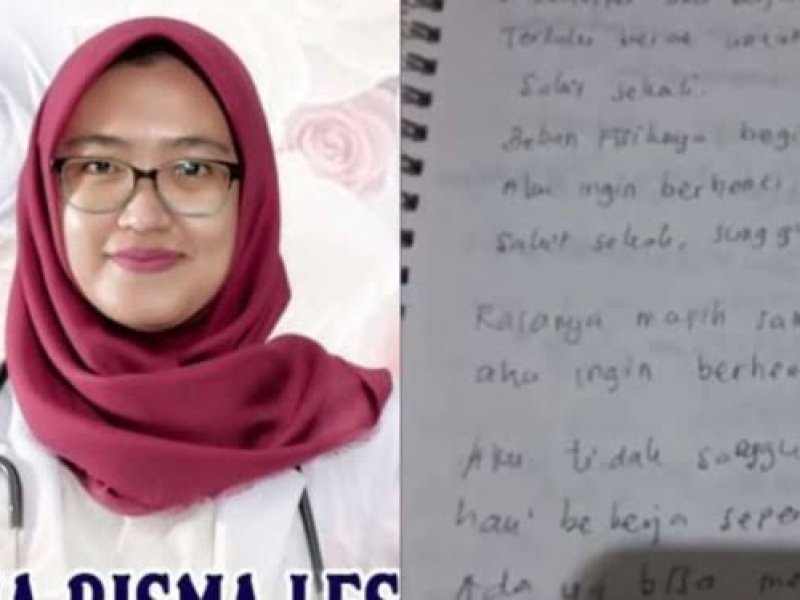 A RISMA LES
Terlalu berat untuk
Sakit sekali.
Beban fisiknya begi
Aku ingin berhenti.
Sakit sekali, sunggu
Rasanya masih sam
aku ingin berhen
Aku tidak sanggu
hari bekerja seper
Ada yg bisa me